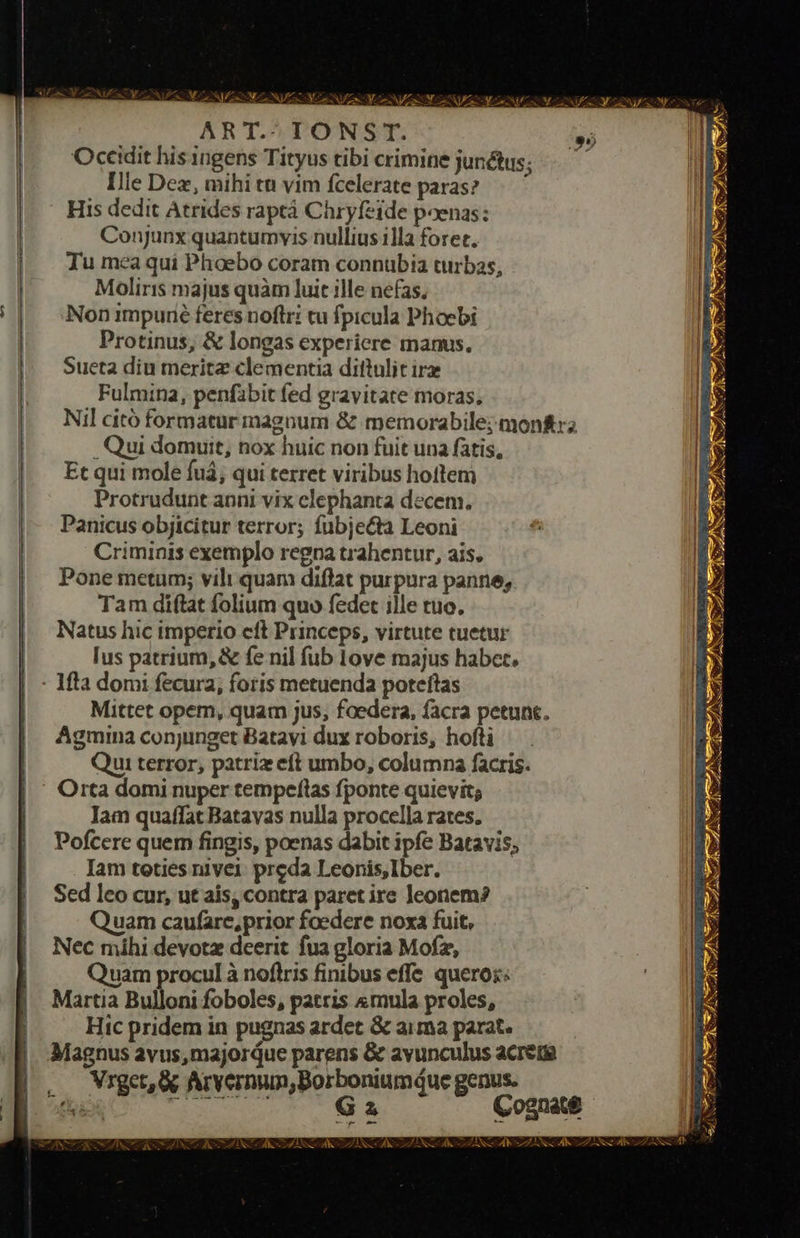 ART. IONST. 99
Occidit his ingens Tityus tibi crimine junctus;
Ille Deæ, mihi tu vim ſcelerate paras?
His dedit Atrides raptâ Chryſeïde pœnas:
Conjunx quantumvis nullius illa foret.
Tu mea qui Phœbo coram connubia turbas,
Moliris majus quàm luit ille nefas.
Non impunè feres noſtri tu ſpicula Phœbi
Protinus, & longas experiere manus.
Sueta diu meritæ clementia diſtulit iræ
Fulmina, penſabit ſed gravitate moras.
Nil citò formatur magnum & memorabile; monſtra
Qui domuit, nox huic non fuit una ſatis.
Et qui mole ſuâ, qui terret viribus hoſtem
Protrudunt anni vix elephanta decem.
Panicus objicitur terror; ſubjecta Leoni
Criminis exemplo regna trahentur, ais.
Pone metum; vili quam diſtat purpura panno,
Tam diſtat ſolium quo ſedet ille tuo.
Natus hic imperio eſt Princeps, virtute tuetur
Ius patrium, & ſe nil ſub Iove majus habet.
Iſta domi ſecura, foris metuenda poteſtas
Mittet opem, quam jus, fœdera, ſacra petunt.
Agmina conjunget Batavi dux roboris, hoſti
Qui terror, patriæ eſt umbo, columna ſacris.
Orta domi nuper tempeſtas ſponte quievit;
Iam quaſſat Batavas nulla procella rates.
Poſcere quem fingis, pœnas dabit ipſe Batavis,
Iam toties nivei pręda Leonis, Iber.
Sed leo cur, ut ais, contra paret ire leonem?
Quam cauſare, prior fœdere noxa fuit.
Nec mihi devotæ deerit ſua gloria Moſæ,
Quam procul à noſtris finibus eſſe queror:
Martia Bulloni ſoboles, patris æmula proles,
Hic pridem in pugnas ardet & arma parat.
Magnus avus, majorque parens & avunculus acrem
Vrget, & Arvernum, Borboniumque genus.
G 2 Cognatæ